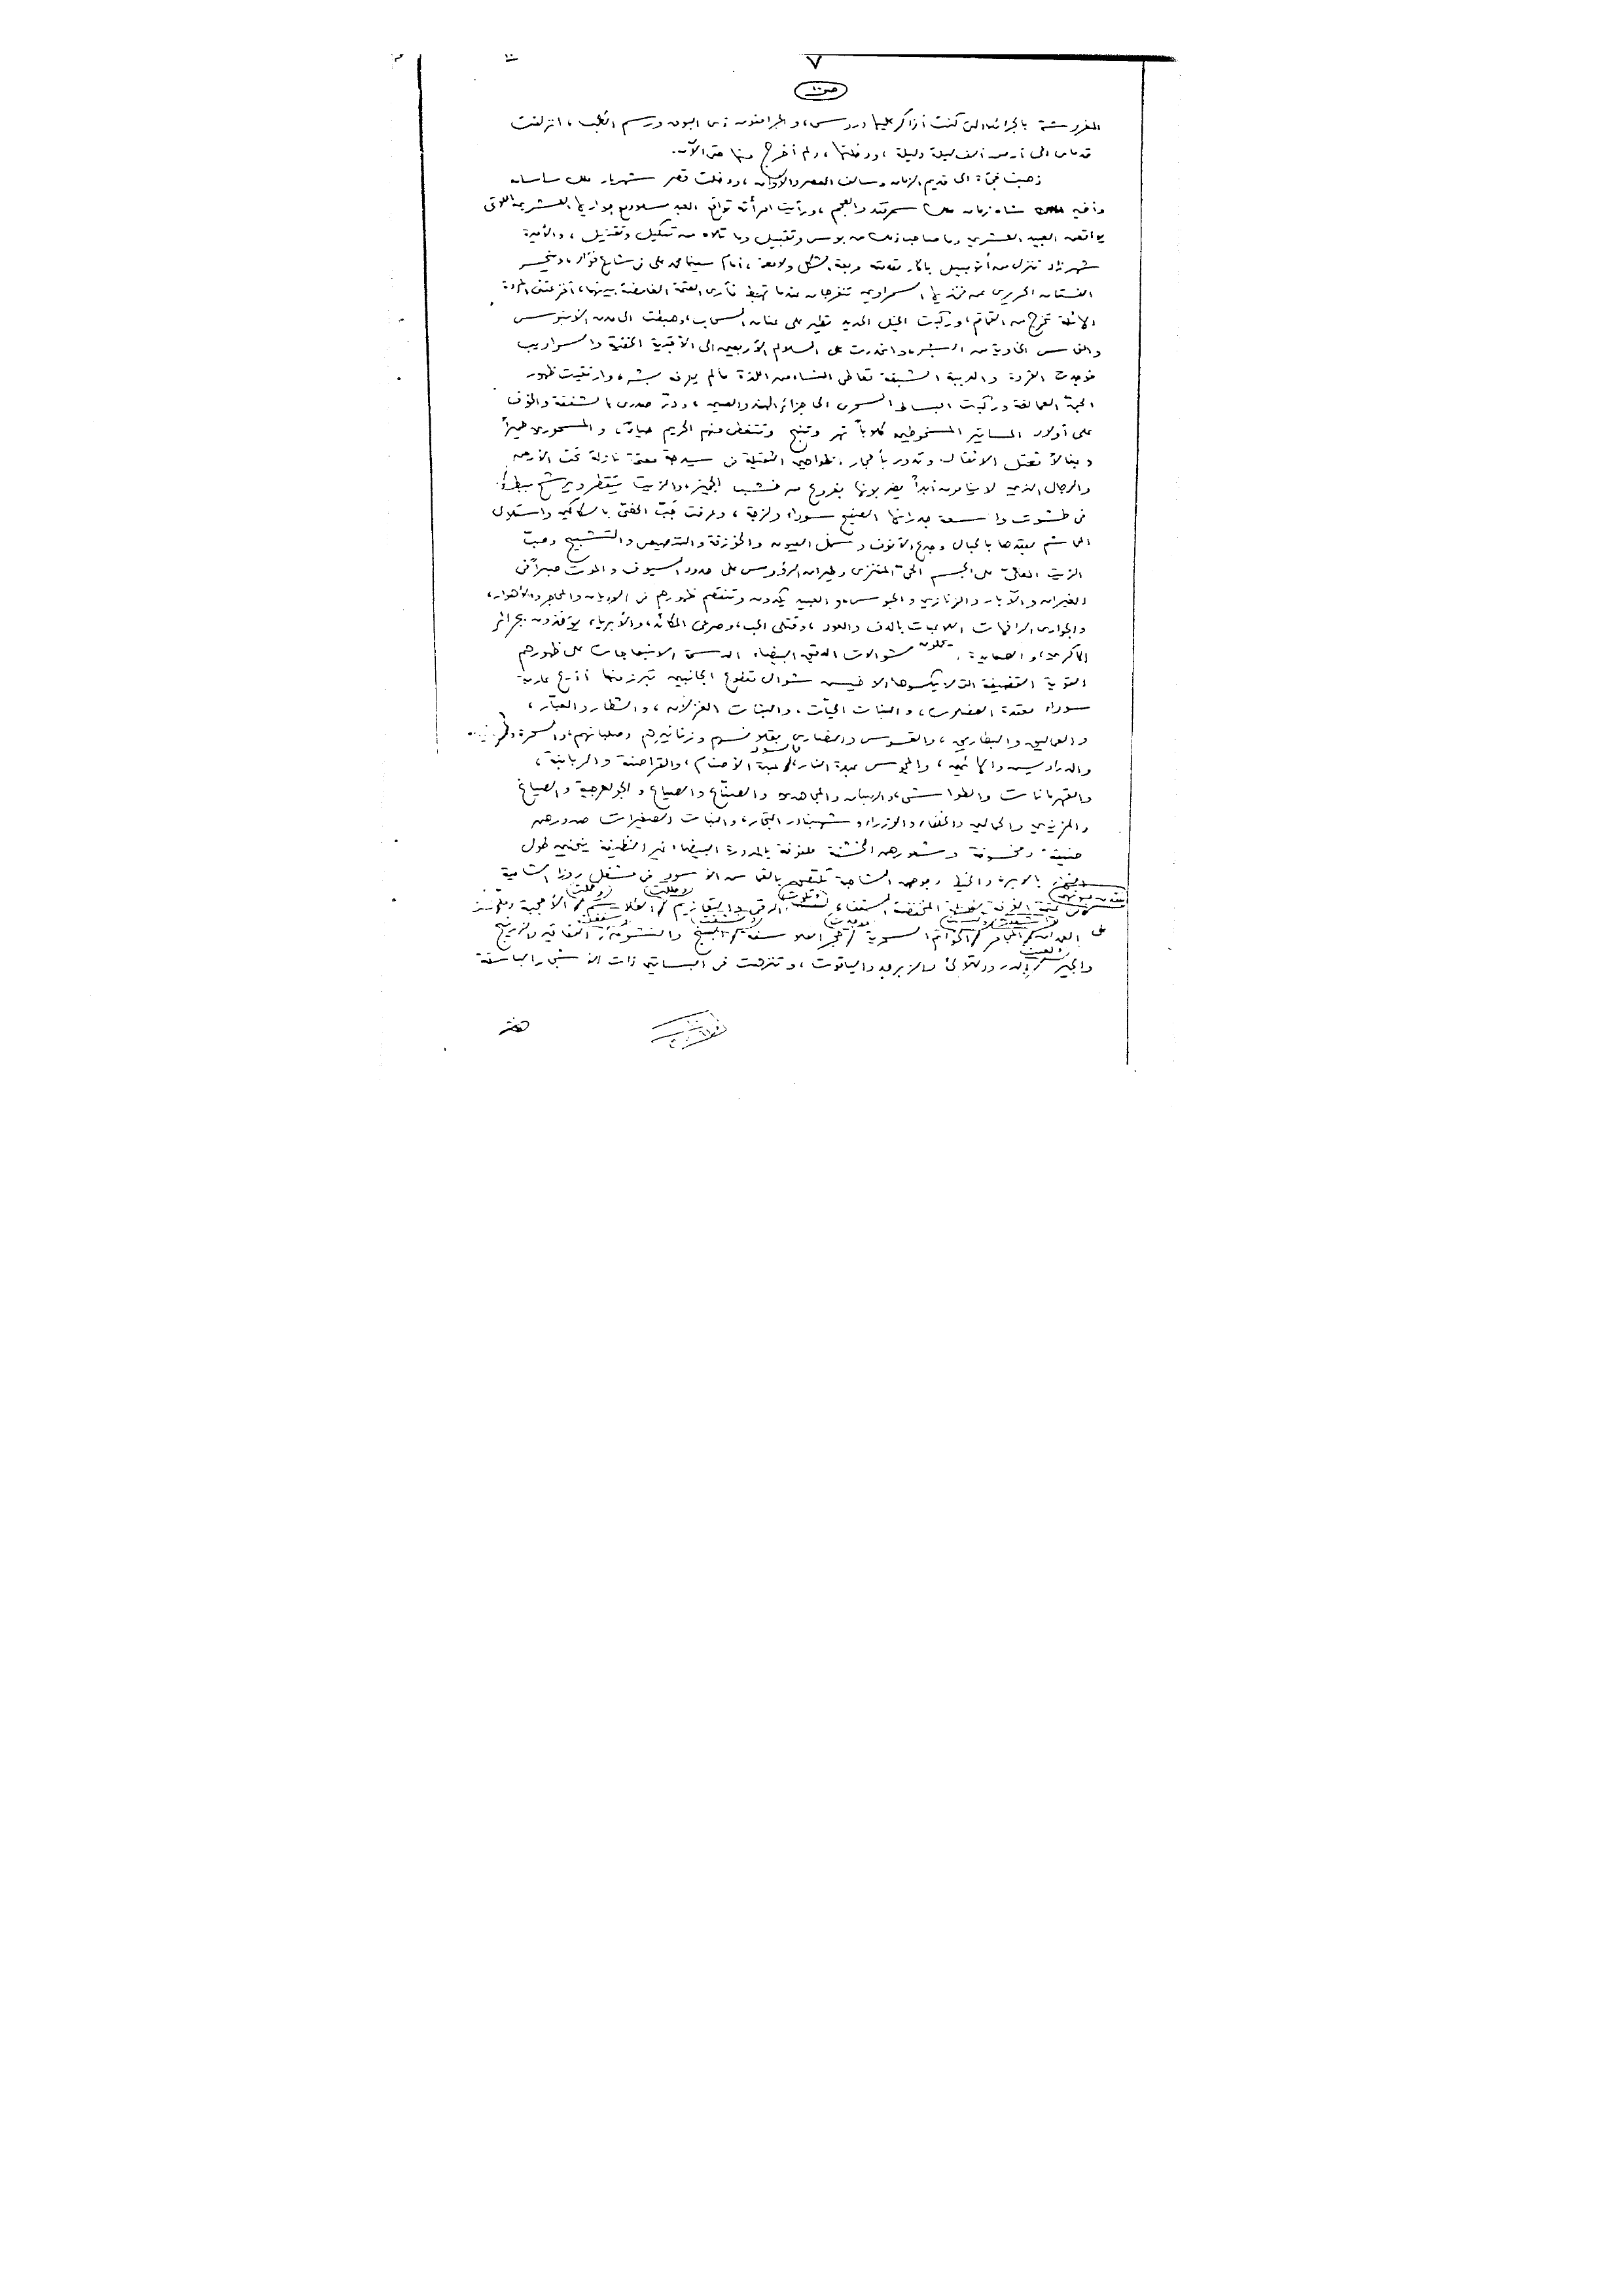 ٧
المفروشة بالجرائد التى كنت أذاكر عليها دروسى، والجرامفون ذى البوق ورسم الكلب، انزلقت
قدماى الى أرض ألف ليلة وليلة، ودخلتها، ولم أخرج منها حتى الآن.
ذهبت فجأة الى قديم الزمان وسالف العصر والأوان، ودخلت قصر شهريار ملك ساسان
وأخيه شاه زمان ملك سمرقند والعجم، ورأيت امرأته تواقع العبد مسعود مع جواريها العشرين اللاتى
يواقعهن العبيد العشرين وما صاحب ذلك من بوس وتقبيل وما تلاه من تنكيل وتقتيل، والأميرة
شهرزاد تنزل من أتومبيل باكار مربعة الشكل ولامعة، أمام سينما محمد على فى شارع فؤاد، وينحسر
الفستان الحريرى عن فخذيها السمراوين تنفرجان عندما تهبط فأرى العتمة الغامضة بينهما، أفزعتنى المردة
الهائلة تخرج من القماقم، وركبت الخيل الحديد تطير على عنان السحاب، وهبطت الى مدن الأبنوس
والنحاس الخاوية من البشر، وانحدرت على السلالم الأربعين الى الأقبية الخفية والسراديب
فوجدت القردة والدببة الشبقة تعاطى النساء من اللذة ما لم يعرفه بشر، وارتقيت ظهور
الجن العمالقة وركبت البساط السحرى الى جزائر الهند والصين، ودق صدرى بالشفقة والخوف
على أولاد السخوطين كلاباً تهر وتنبح وتتغطى منهم الحريم حياءً، والمسحورين حميراً
وبغالاً تحمل الأثقال وتدور بأحجار الطواحين الثقيلة فى سيرجة معتمة نازلة تحت الأرض
والرجال الذين لا ينامون أبداً يضربونها بفروع من خشب الجميز، والزيت يتقطر ويرشح ببطء
فى طشوت واسعة جدرانها الصفيح سوداء ولزجة، وعرفت جَبّ الخصى بالسكاكين واستلال
المحاشم بعقدها بالحبال وجدع الأنوف وسمل العيون والخوزقة والترصيص والتشبيح وصبّ
الزيت المغلىّ على الجسم الحىّ المتنزى وطيران الرؤوس على حدود السيوف والموت صبراً فى
الغيران والآبار والزنازين والحبوس، والعبيد يكدون وتنقصم ظهورهم فى الوديان والمحاجر والأهوار،
والجوارى الراقصات اللاعبات بالدف والعود، وقتلى الحب، وصرعى المكائد، والأبرياء يؤخذون بجرائر
الماكرين، والصعايدة يحملون شوالات الدقيق البيضاء على ظهورهم
القوية النحيفة التى لا يكسوها الا خيش شوال مقطوع الجانبين تبرز منها أذرع عارية
سوداء معقدة العضلات، والبنات الحيّات، والبنات الغزلان، والشطار والعيّار،
والعماليق والبطاريق، والقسوس والنصارى بقلانسهم وزنانيرهم وصلبانهم، والسحرة
والدراويش، والمجوس عبدة النار، الأصنام، والقراصنة والربابنة،
والقهرمانات والطواشى، والرهبان والمجاهدين والصنّاع والصياع والجواهرجية والصياغ
والمزينين والحمالين والخلفاء والوزراء وشهبندر التجار، والبنات الصغيرات صدورهن
ضيقة وشعورهن الخشنة ملفوفة بالمدورة البيضاء غير النظيفة ينحنين طول
بالإبرة والخيط وجوههن الشاحبة تلتصق بالقماش الأسود فى مشغل روزا الشامية
المنخفضة السقف، الرقى والتعازيم الطلاسم الأحجية
على المجامر الخواتم السحرية حجر الفلاسفة البنج والنشوق
والجير الدر واللآلئ والزبرجد والياقوت، وتنزهت فى البساتين ذات الأشجار الباسقة